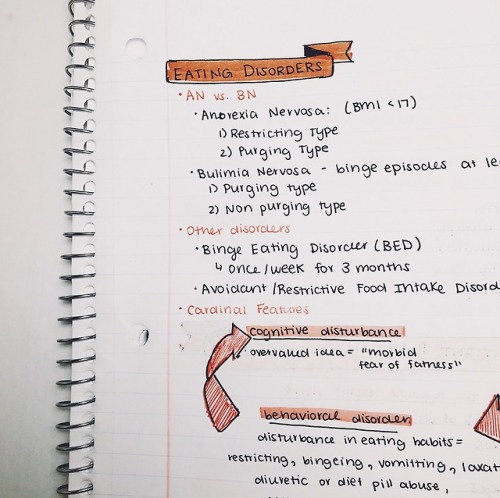 EATING DISORDERS
• AN vs. BN
• Anorexia Nervosa: (BMI <17)
1) Restricting Type
2) Purging Type
• Bulimia Nervosa - binge episodes at le
1) Purging type
2) Non purging type
• Other disorders
• Binge Eating Disorder (BED)
↳ once/week for 3 months
• Avoidant/Restrictive Food Intake Disord
• Cardinal Features
cognitive disturbance
• overvalued idea = "morbid
fear of fatness"
behavioral disorder
disturbance in eating habits =
restricting, bingeing, vomitting, laxat
diuretic or diet pill abuse,